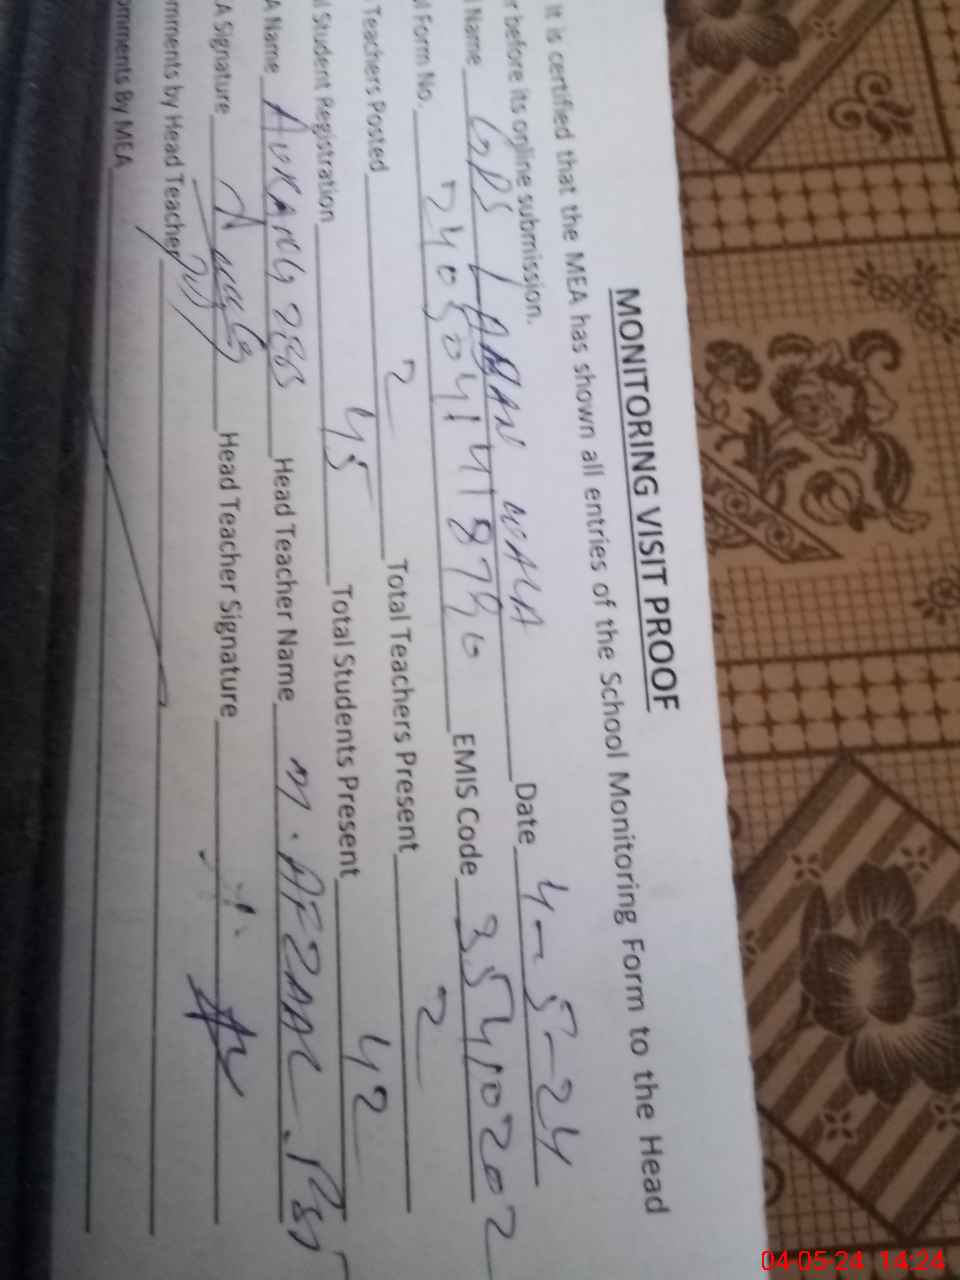 MONITORING VISIT PROOF
It is certified that the MEA has shown all entries of the School Monitoring Form to the Head
r before its online submission.
Name GPS WALA Date 4-5-24
l Form No. EMIS Code 35410202
Teachers Posted 2 Total Teachers Present 2
l Student Registration 45 Total Students Present 42
A Name Head Teacher Name M. AFZAAL. PST
A Signature Head Teacher Signature
mments by Head Teacher
omments By MEA
04-05-24 14:24